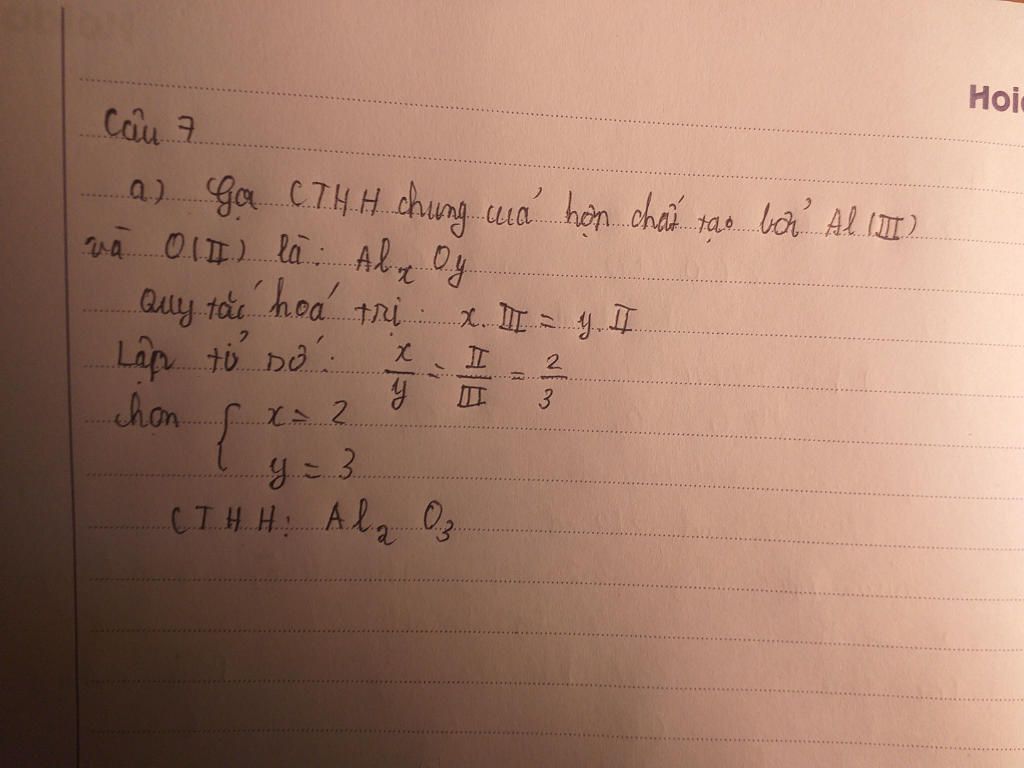 Hoid
Câu 7
a) Gọi CTHH chung của hợp chất tạo bởi Al (III)
và O(II) là: AlxOy
Quy tắc hoá trị: x.III = y.II
Lập tỉ số: x/y = II/III = 2/3
chọn { x = 2
y = 3
CTHH: Al2O3